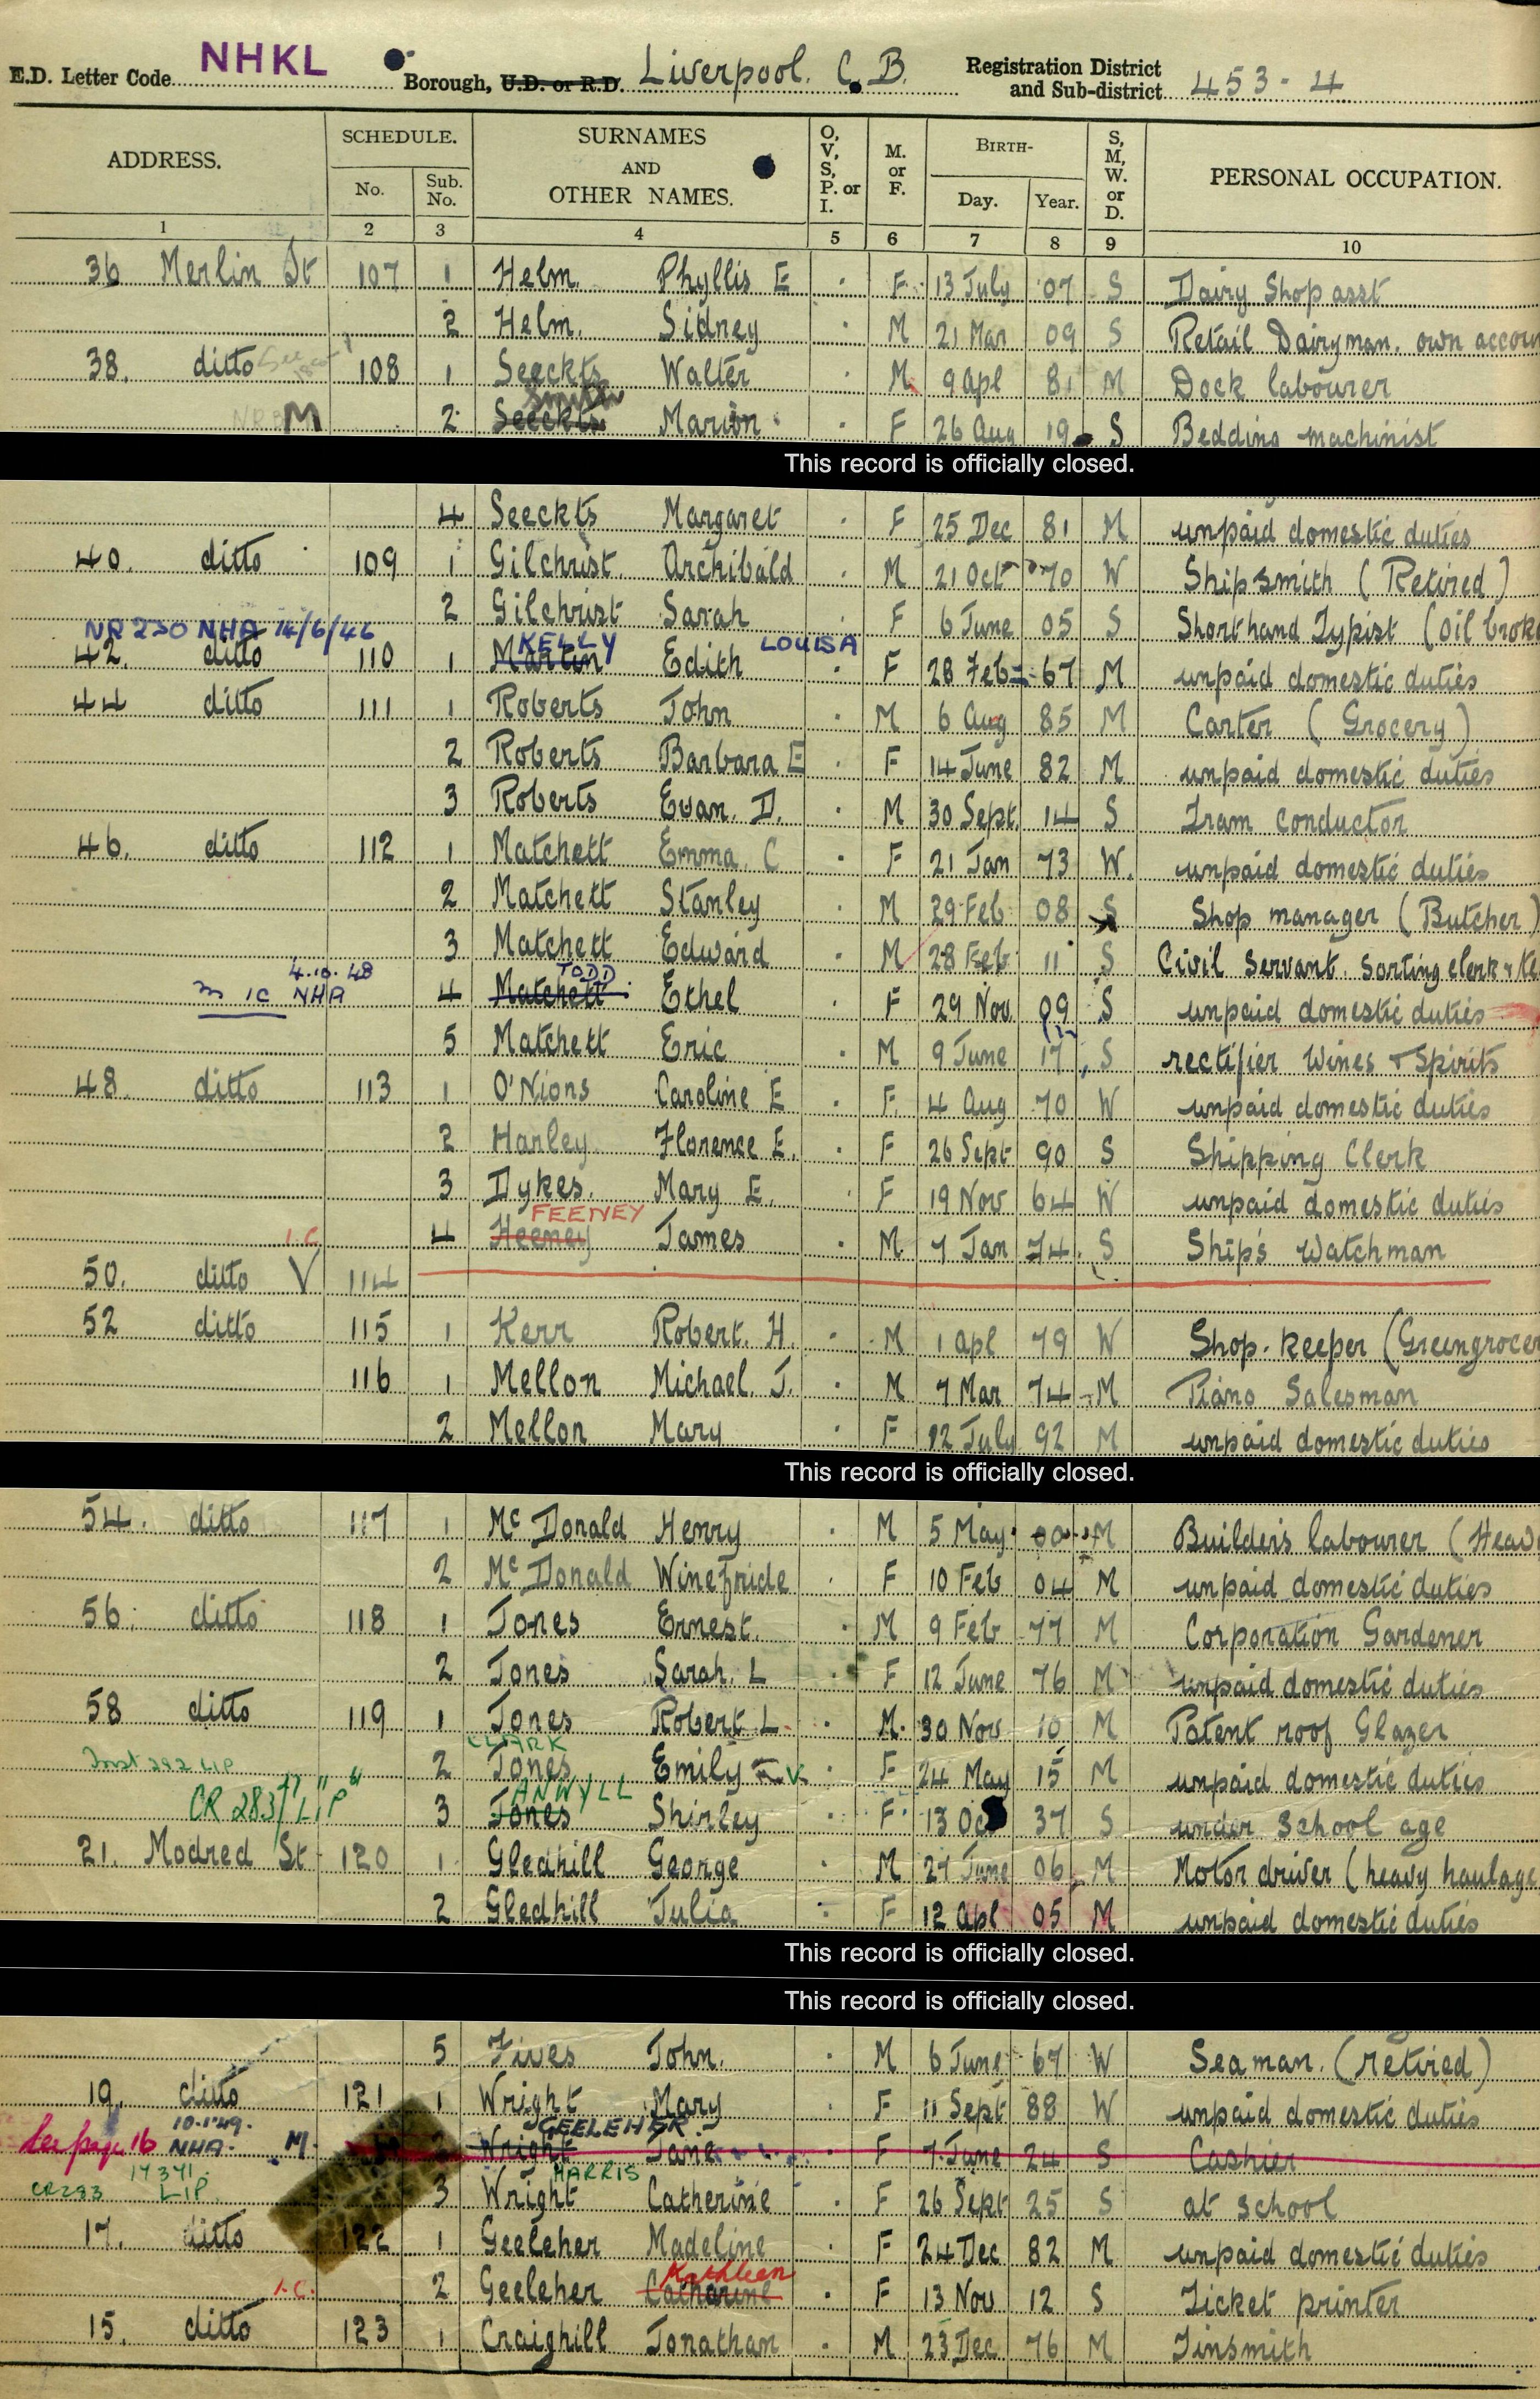 E.D. Letter Code NHKL Borough, U.D. or R.D. Liverpool. C.B. Registration District and Sub-district 453-4
ADDRESS. SCHEDULE. No. Sub. No. SURNAMES AND OTHER NAMES. O, V, S, P. or I. M. or F. BIRTH- Day. Year. S, M, W. or D. PERSONAL OCCUPATION.
1 2 3 4 5 6 7 8 9 10
36 Merlin St 107 1 Helm. Phyllis E F 13 July 07 S Dairy Shop asst
2 Helm. Sidney M 21 Mar 09 S Retail Dairyman. own accoun
38. ditto See 108 1 Seeckts Walter M 9 Apl 81 M Dock labourer
Smith
M 2 Seeckts Marion F 26 Aug 19 S Bedding machinist
This record is officially closed.
4 Seeckts Margaret F 25 Dec 81 M unpaid domestic duties
40. ditto 109 1 Gilchrist. Archibald M 21 Oct 70 W Shipsmith (Retired)
2 Gilchrist Sarah F 6 June 05 S Shorthand Typist (oil broke
NR 230 NHA 14/6/46 KELLY LOUISA
42. ditto 110 1 Martin Edith F 28 Feb 67 M unpaid domestic duties
44 ditto 111 1 Roberts John M 6 Aug 85 M Carter (Grocery)
2 Roberts Barbara E F 14 June 82 M unpaid domestic duties
3 Roberts Evan. D. M 30 Sept. 14 S Tram conductor
46. ditto 112 1 Matchett Emma. C F 21 Jan 73 W. unpaid domestic duties
2 Matchett Stanley M 29 Feb 08 S Shop manager (Butcher)
3 Matchett Edward M 28 Feb 11 S Civil Servant. Sorting clerk &
4.10.48 TODD
m 1c NHA 4 Matchett Ethel F 29 Nov 09 S unpaid domestic duties
5 Matchett Eric M 9 June 17 S rectifier Wines & Spirits
48. ditto 113 1 O'Nions Caroline E F. 4 Aug 70 W unpaid domestic duties
2 Harley Florence E. F 26 Sept 90 S Shipping Clerk
3 Dykes. Mary E. F 19 Nov 64 W unpaid domestic duties
FEENEY
I.C. 4 Heeney James M 7 Jan 74 S Ship's Watchman
50. ditto V 114
52 ditto 115 1 Kerr Robert. H. M 1 Apl 79 W Shop-keeper (Greengrocer
116 1 Mellon Michael. J. M 7 Mar 74 M Piano Salesman
2 Mellon Mary F 12 July 92 M unpaid domestic duties
This record is officially closed.
54. ditto 117 1 McDonald Henry M 5 May 00 M Builders labourer (Heav
2 McDonald Winefride F 10 Feb 04 M unpaid domestic duties
56. ditto 118 1 Jones Ernest. M 9 Feb 77 M Corporation Gardener
2 Jones Sarah. L F 12 June 76 M unpaid domestic duties
58 ditto 119 1 Jones Robert L. M. 30 Nov 10 M Patent roof Glazer
CLARK
292 LIP 2 Jones Emily V F 24 May 15 M unpaid domestic duties
ANWYLL
CR 283/LIP 3 Jones Shirley F 13 Oct 37 S under school age
21. Modred St 120 1 Gledhill George M 27 June 06 M Motor driver (heavy haulage
2 Gledhill Julia F 12 Apl 05 M unpaid domestic duties
This record is officially closed.
This record is officially closed.
5 Fives John. M 6 June 67 W Seaman. (retired)
19. ditto 121 1 Wright Mary F 11 Sept 88 W unpaid domestic duties
10.1.49. GEELEHER.
See page 16 NHA. M. 2 Wright Jane F 7 June 24 S Cashier
17371 HARRIS
CR283 LIP. 3 Wright Catherine F 26 Sept 25 S at school
17. ditto 122 1 Geeleher Madeline F 24 Dec 82 M unpaid domestic duties
Kathleen
I.C. 2 Geeleher Catharine F 13 Nov 12 S Ticket printer
15. ditto 123 1 Craighill Jonathan M 23 Dec 76 M Tinsmith